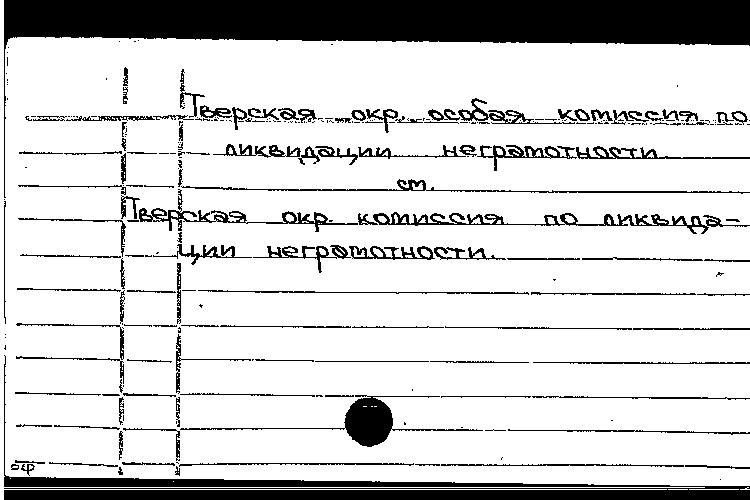 Тверская окр. особая комиссия по
ликвидации неграмотности
см.
Тверская окр. комиссия по ликвида-
ции неграмотности.